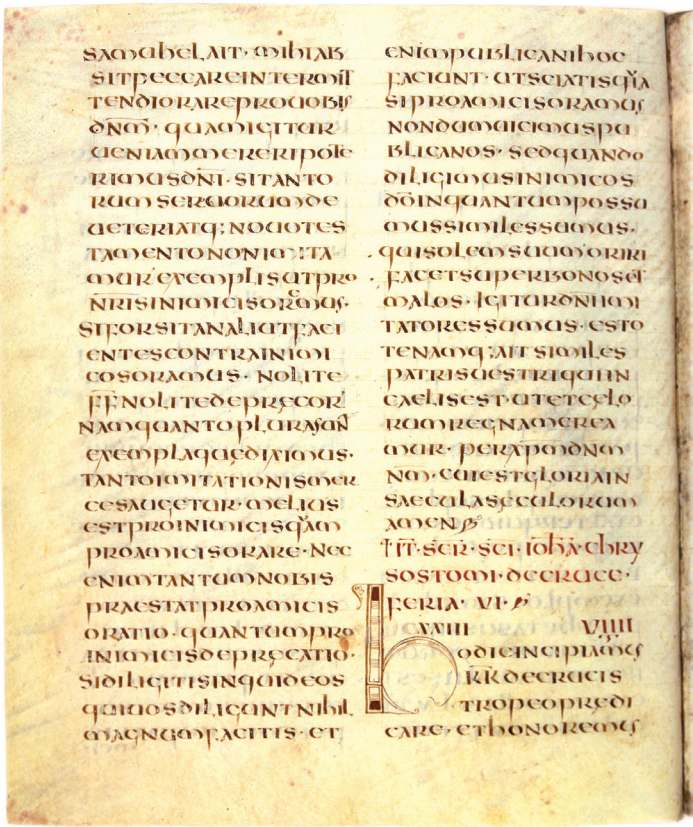 SAMUHEL AIT · MIHI AB
SIT PECCARE INTERMIT
TENDI ORARE PRO UOBIS
DÑM · QUAM IGITUR
UENIAM MERERI POTE
RIMUS DÑI · SI TANTO
RUM SERUORUM DE
UETERI ATQ; NOUO TES
TAMENTO NON IMITA
MUR EXEMPLIS UT PRO
ÑRIS INIMICIS OREMUS·
SI FORSITAN ALII UT FACI
ENTES CONTRA INIMI
COS ORAMUS · NOLITE
FF NOLITE DEPRĘCOR
NAM QUANTO PLURA SUÑ
EXEMPLA QUĘ DIXIMUS·
TANTO IMITATIONIS MER
CES AUGETUR · MELIUS
EST PRO INIMICIS QUAM
PRO AMICIS ORARE · NEC
ENIM TANTUM NOBIS
PRAESTAT PRO AMICIS
ORATIO · QUANTUM PRO
INIMICIS DEPRĘCATIO·
SI DILIGITIS INQUID EOS
QUI UOS DILIGUNT NIHIL
MAGNUM FACITIS · ET
ENIM PUBLICANI HOC
FACIUNT · UT SCIATIS QUIA
SI PRO AMICIS ORAMUS
NONDUM UICIMUS PU
BLICANOS · SED QUANDO
DILIGIMUS INIMICOS
DŌ IN QUANTUM POSSU
MUS SIMILES SUMUS·
QUI SOLEM SUUM ORIRI
FACET SUPER BONOS ET
MALOS · IGITUR DÑI IMI
TATORES SUMUS · ESTO
TE NAMQ; AIT SIMILES
PATRIS UESTRI QUI IN
CAELIS EST · UT ET CĘLO
RUM REGNA MEREA
MUR · PER XPM DÑM
ÑM · CUI EST GLORIA IN
SAECULA SĘCULORUM
AMEN
TIT · SER · SCI · IOHA · CHRY
SOSTOMI · DE CRUCE ·
FERIA · VI ·
XXIII VIIII
HODIE INCIPIAMUS
KK DE CRUCIS
TROPEO PREDI
CARE · ET HONOREMUS